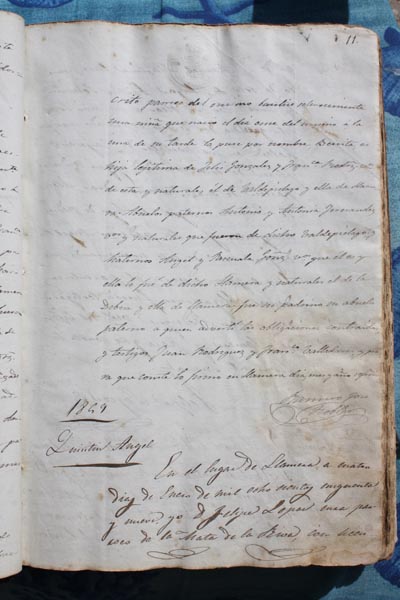 11.
crito parroco del mismo bautice solemnemente
una niña que nacio el dia once del mismo a la
una de su tarde le puse por nombre Benita es
hija legitima de Gonzalez y Fran.ca
de esta y naturales el de Valdepielago y ella de Llame-
ra Abuelos paternos Antonio y Antonia Fernandez
v.os y naturales que fueron de dicho Valdepielago y
Maternos Angel y Pascuala v.os que el es y
ella lo fue de dicho Llamera y naturales el de la
y ella de fue su padrino su abuelo
paterno a quien adverti las obligaciones contraidas
y testigos Juan Rodriguez y Fran.co y pa-
ra que conste lo firmo en Llamera dia mes y año
1859
Angel
En el lugar de Llamera a cuatro
dias de Enero de mil ocho cientos cincuenta
y nueve; yo D. Felipe Lopez cura pa-
rroco de la Mata de la Riva con licen